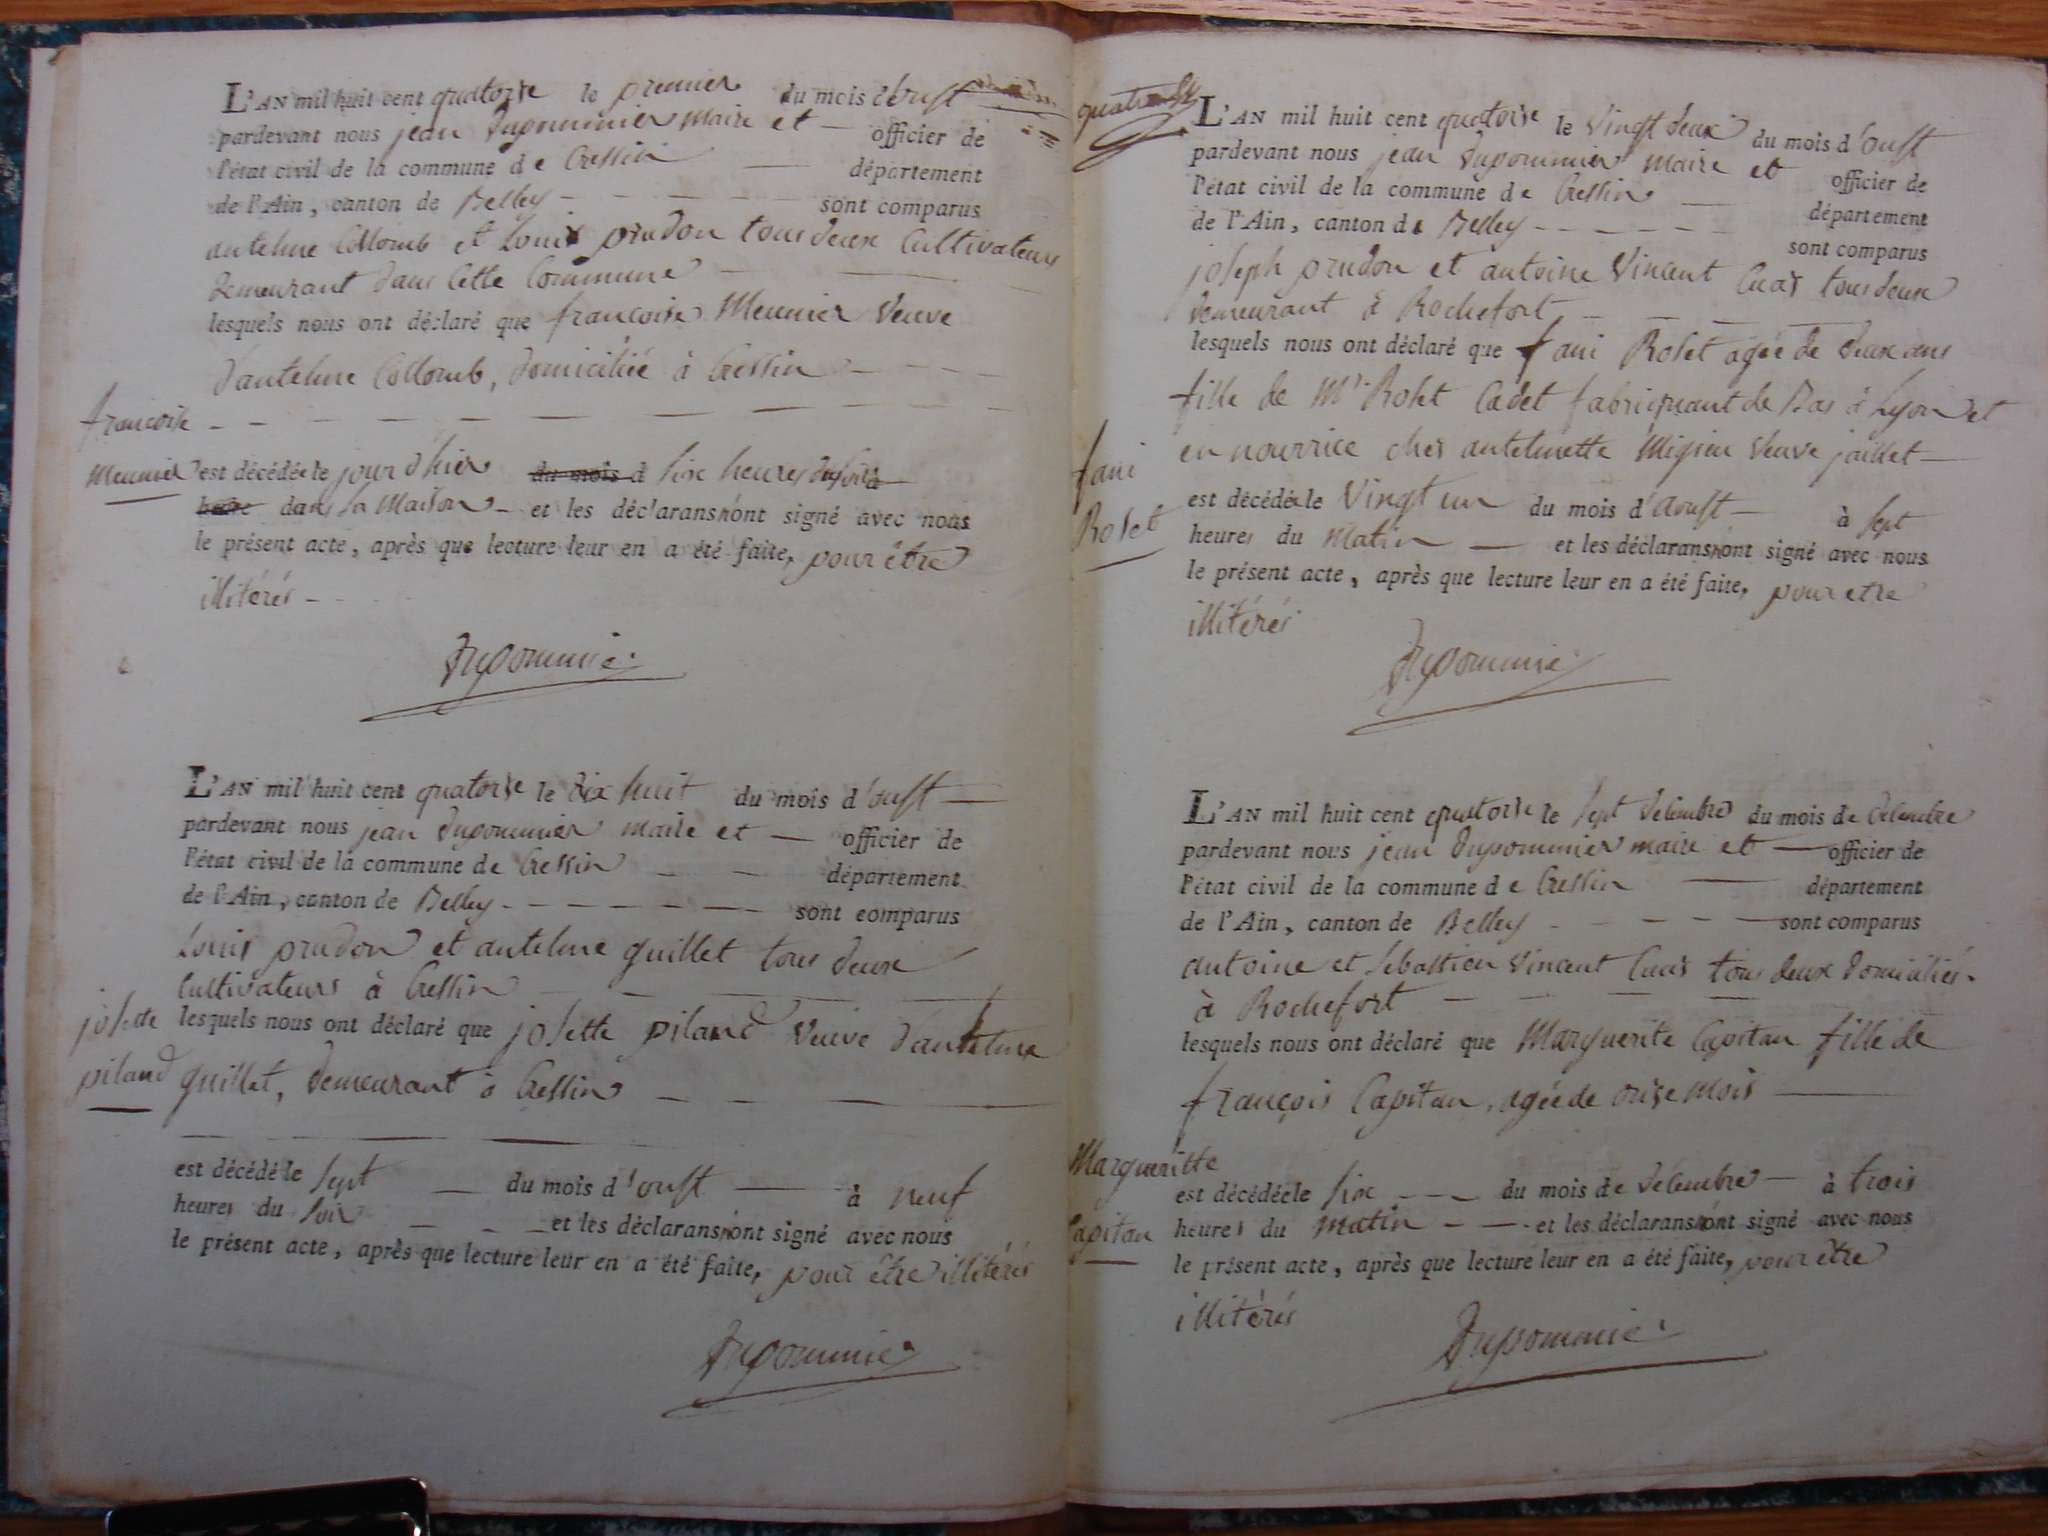 L'AN mil huit cent quatorze le premier du mois d'oust
pardevant nous jean Dupommier maire et — officier de
l'état civil de la commune de Cressin — département
de l'Ain, canton de Belley - - - - - sont comparus
antelme Collomb et Louis prudon tous deux Cultivateurs
demeurant dans Cette Commune —
lesquels nous ont déclaré que francoise Meunier veuve
d'antelme Collomb, domiciliée à Cressin - - - -
francoise
Meunier est décédée le jour d'hier du mois d six heures du soir à
heure dans sa maison - et les déclarans n'ont signé avec nous
le présent acte, après que lecture leur en a été faite, pour être
illitérés -
Dupommier
L'AN mil huit cent quatorze le dix huit du mois d'oust —
pardevant nous jean Dupommier maire et — officier de
l'état civil de la commune de Cressin - - département
de l'Ain, canton de Belley - - - - - - - sont comparus
Louis prudon et antelme quillet tous deux
Cultivateurs à Cressin - - - -
josette lesquels nous ont déclaré que josette piland veuve d'antelme
piland quillet, demeurant à Cressin - - - —
est décédé le sept — du mois d'oust — à neuf
heures du soir - - - et les déclarans n'ont signé avec nous
le présent acte, après que lecture leur en a été faite, pour être illitérés
Dupommier
quatre
L'AN mil huit cent quatorze le vingt deux du mois d'oust
pardevant nous jean Dupommier maire et officier de
l'état civil de la commune de Cressin — département
de l'Ain, canton de Belley - - - - - - sont comparus
joseph prudon et antoine vincent Cuaz tous deux
demeurant à Rochefort - - - -
lesquels nous ont déclaré que fani Rolet agée de deux ans
fille de Mr Rolet Cadet fabriquant de Bas à Lyon et
en nourrice chez antelmette Migieu veuve jaillet —
fani
Rolet
est décédée le vingt un du mois d'aoust — à sept
heures du matin — et les déclarans n'ont signé avec nous
le présent acte, après que lecture leur en a été faite, pour etre
illitérés
Dupommier
L'AN mil huit cent quatorze le sept décembre du mois de décembre
pardevant nous jean Dupommier maire et — officier de
l'état civil de la commune de Cressin — département
de l'Ain, canton de Belley - - - - sont comparus
antoine et sebastien vincent Cuaz tous deux domiciliés
à Rochefort - - - -
lesquels nous ont déclaré que Marguerite Capitan fille de
françois Capitan, agée de onze mois —
Margueritte
Capitan
est décédée le six - - - du mois de décembre — à trois
heures du matin - - et les déclarans n'ont signé avec nous
le présent acte, après que lecture leur en a été faite, pour être
illitérés
Dupommier